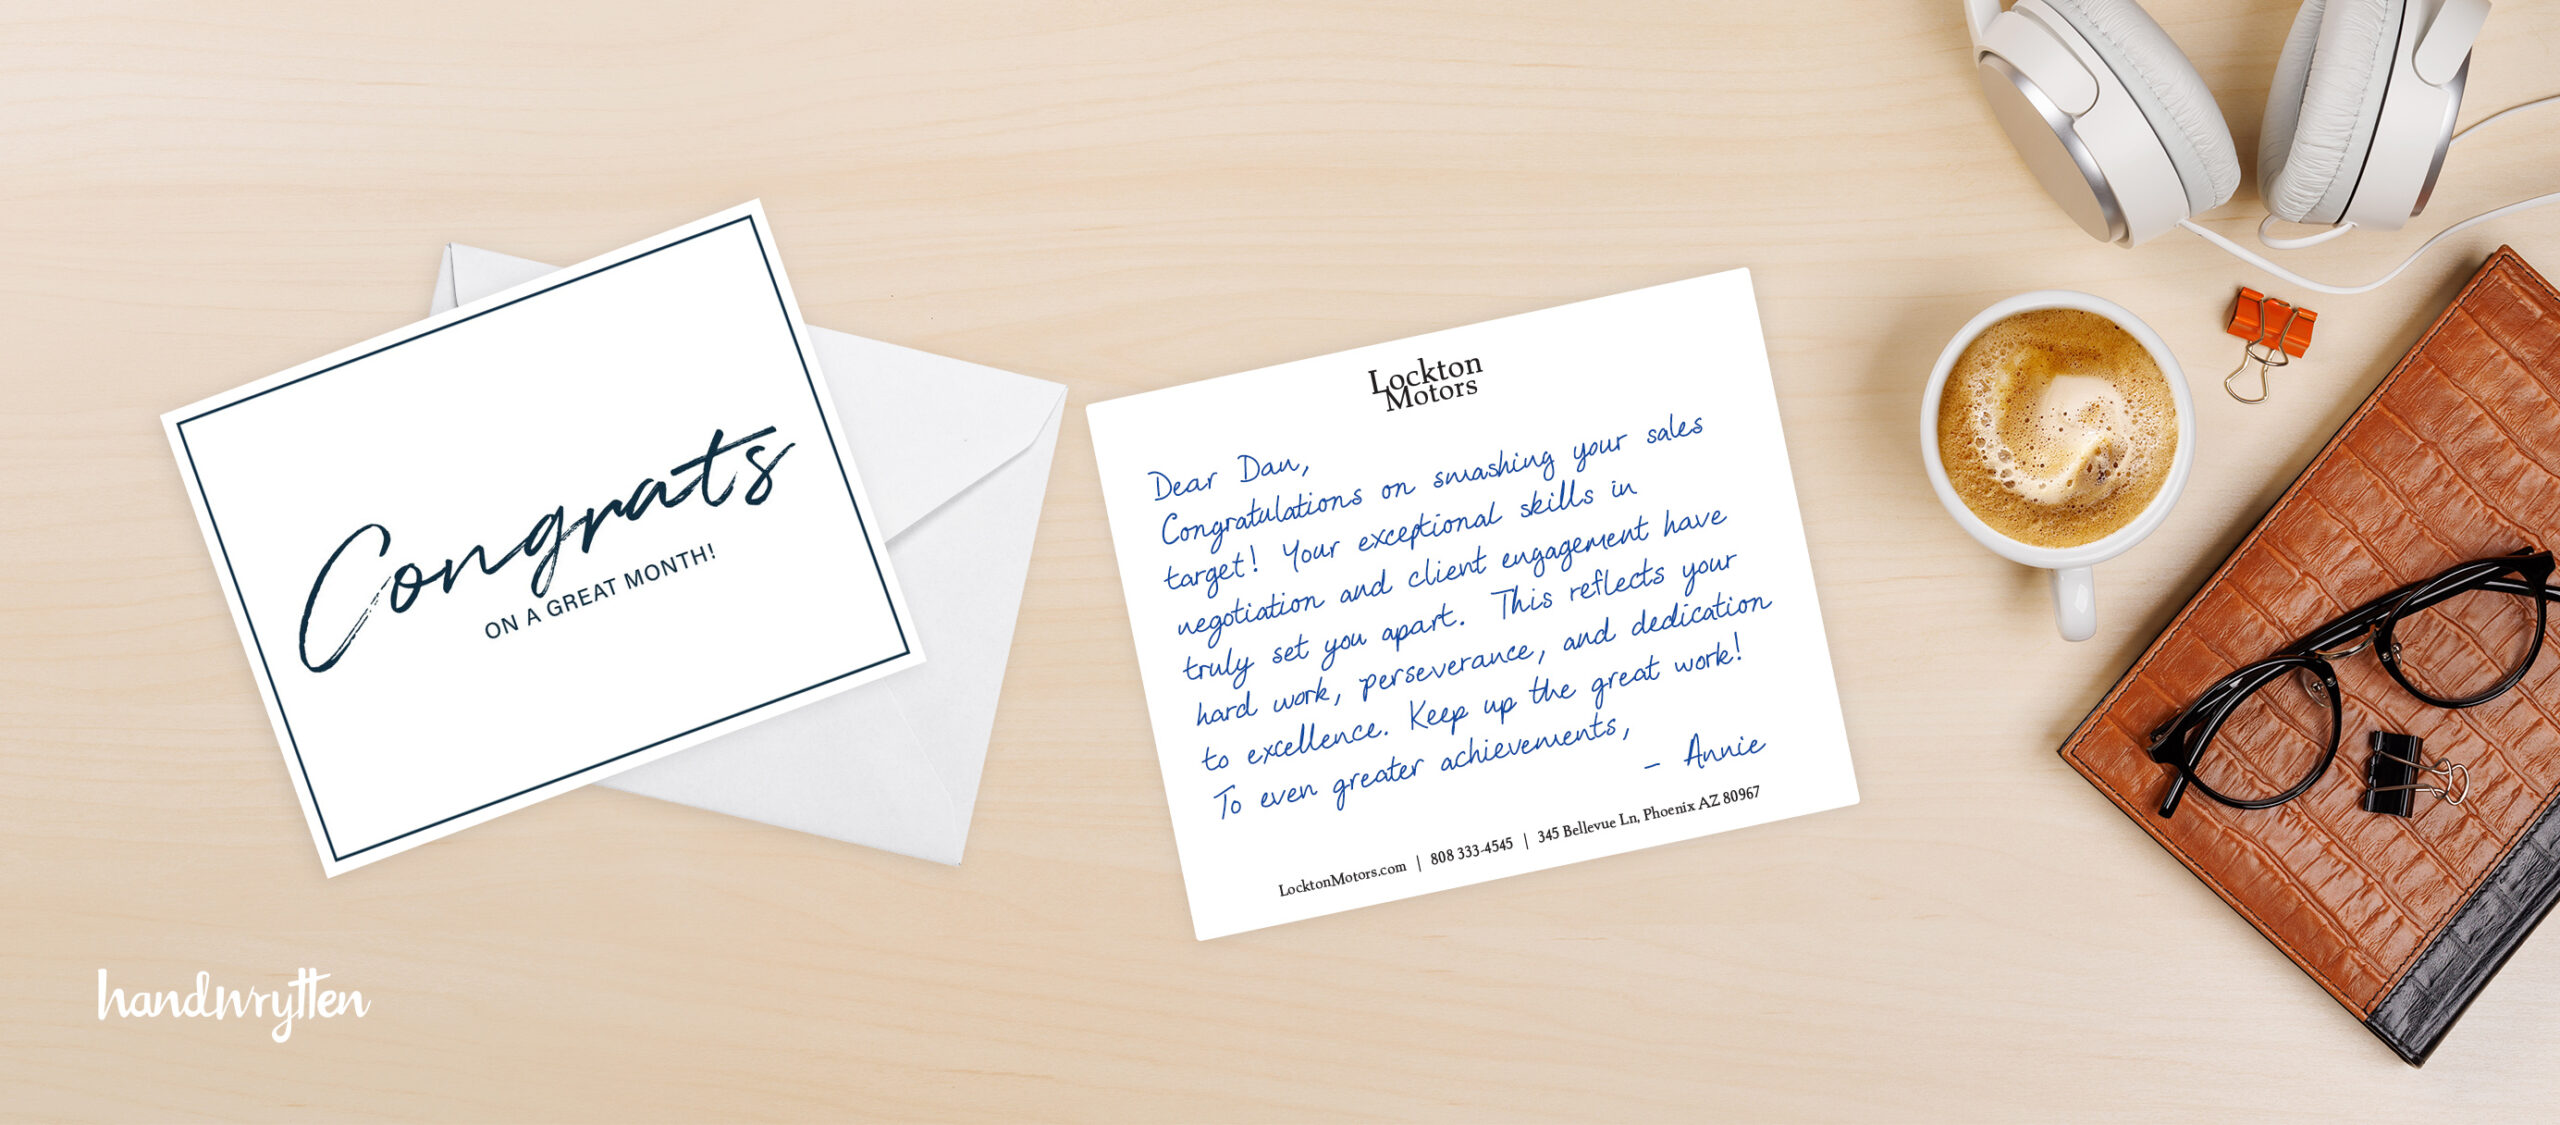 Congrats
ON A GREAT MONTH!
Lockton
Motors
Dear Dan,
Congratulations on smashing your sales
target! Your exceptional skills in
negotiation and client engagement have
truly set you apart. This reflects your
hard work, perseverance, and dedication
to excellence. Keep up the great work!
To even greater achievements,
– Annie
LocktonMotors.com | 808 333-4545 | 345 Bellevue Ln, Phoenix AZ 80967
handwrytten